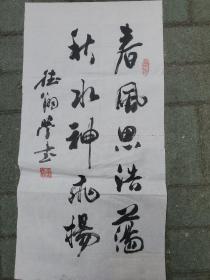 春風思浩蕩
秋水神飛揚
德潤學書